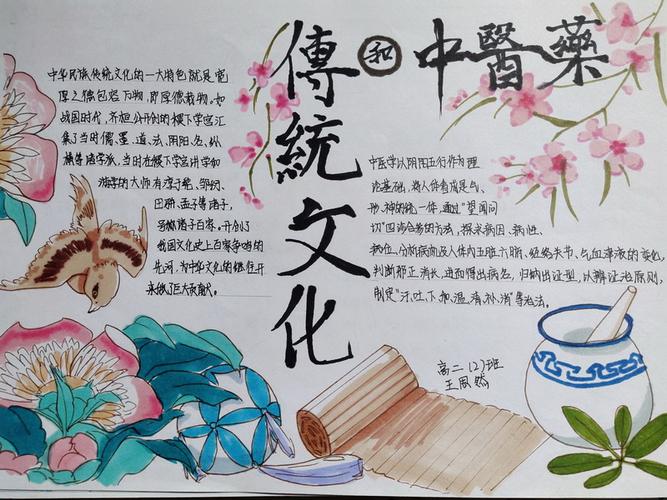 傳統文化
和
中醫藥
中华民族传统文化的一大特色就是宽
厚之德包容万物，即厚德载物。如
战国时代，齐桓公开创的稷下学宫汇
集了当时儒、墨、道、法、阴阳、名、纵
横等诸学派，当时在稷下学宫讲学和
游学的大师有淳于髡、邹衍、
田骈、孟子等诸子，
号称诸子百家。开创了
我国文化史上百家争鸣的
先河，为中华文化的继往开
来做了巨大贡献。
中医学以阴阳五行作为理
论基础，将人体看成是气、
形、神的统一体，通过“望闻问
切”四诊合参的方法，探求病因、病性、
病位、分析病机及人体内五脏六腑、经络关节、气血津液的变化，
判断邪正消长，进而得出病名，归纳出证型，以辨证论治原则，
制定“汗、吐、下、和、温、清、补、消”等治法。
高二（2）班
王思然